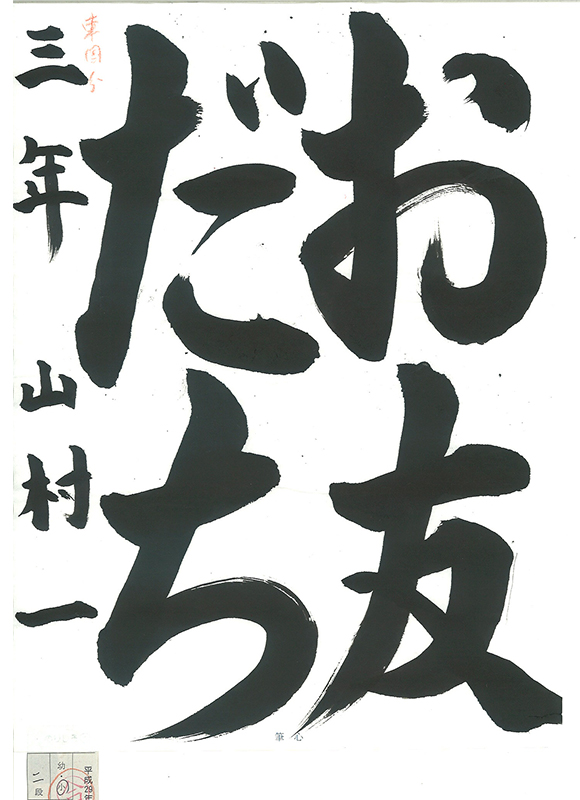 お友
だち
三年 山村一
東国分
心筆
平成29年
幼・小
二段